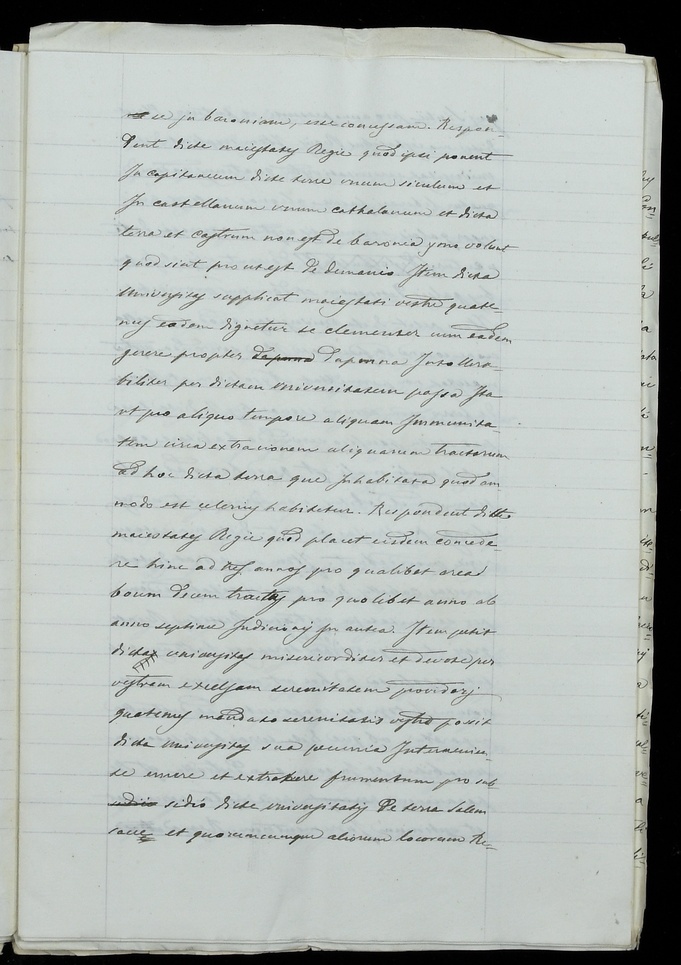 ce in baroniam, esse concessam. Respon-
dent dicte maiestates Regie quod ipsi ponent
In capitaneum dicte terre unum siculum et
In castellanum unum cathalanum et dicta
terra et castrum non est de baronia ymo volunt
quod siat prout est de demanio Item dicta
Universitas supplicat maiestati vestre quate-
nus eadem dignetur se clementer cum eadem
gerere propter dapnna Intollera-
biliter per dictam universitatem passa Ita
ut pro aliquo tempore aliquam Immunita-
tem circa extracionem aliquarum tractarum
ad hoc dicta terra que Inhabitata quodam
modo est celerius habitetur. Respondent dicte
maiestates Regie quod placet eisdem concede-
re hinc ad tres annos pro qualibet area
boum decem tractas pro quolibet anno ab
anno septime Indicionis In antea. Item petit
dicta universitas misericorditer et devote per
vestram excelsam serenitatem provideri
quatenus mandato serenitatis vestre possit
dicta universitas sua pecunia
se emere et extrahere frumentum pro sub
sidio dicte universitatis de terra Salem
et quorumcumque aliorum locorum Re-